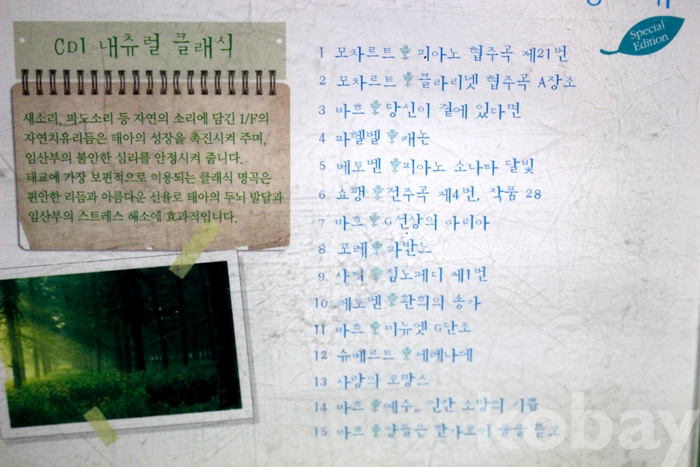 Special
Edition
CD1 내츄럴 클래식
새소리, 파도소리 등 자연의 소리에 담긴 1/F의
자연치유리듬은 태아의 성장을 촉진시켜 주며,
임산부의 불안한 심리를 안정시켜 줍니다.
태교에 가장 보편적으로 이용되는 클래식 명곡은
편안한 리듬과 아름다운 선율로 태아의 두뇌 발달과
임산부의 스트레스 해소에 효과적입니다.
1 모차르트 피아노 협주곡 제21번
2 모차르트 클라리넷 협주곡 A장조
3 바흐 당신이 곁에 있다면
4 파헬벨 캐논
5 베토벤 피아노 소나타 달빛
6 쇼팽 전주곡 제4번, 작품 28
7 바흐 G선상의 아리아
8 포레 파반느
9 사티 짐노페디 제1번
10 베토벤 환희의 송가
11 바흐 미뉴엣 G단조
12 슈베르트 세레나데
13 사랑의 로망스
14 바흐 예수, 인간 소망의 기쁨
15 바흐 양들은 한가로이 풀을 뜯고
kobay